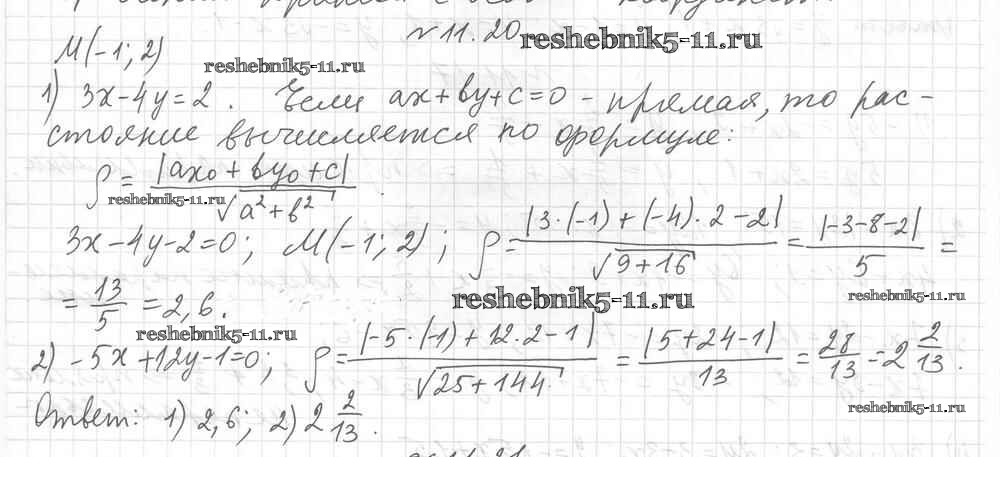 №11.20 reshebnik5-11.ru
M(-1; 2) reshebnik5-11.ru
1) 3x-4y=2. Если ax+by+c=0 - прямая, то рас-
стояние вычисляется по формуле:
ρ = |ax₀+by₀+c| / √(a²+b²).
reshebnik5-11.ru
3x-4y-2=0; M(-1; 2); ρ = |3·(-1)+(-4)·2-2| / √(9+16) = |-3-8-2| / 5 =
= 13/5 = 2,6.
reshebnik5-11.ru reshebnik5-11.ru
reshebnik5-11.ru
2) -5x+12y-1=0; ρ = |-5·(-1)+12·2-1| / √(25+144) = |5+24-1| / 13 = 28/13 = 2 2/13.
reshebnik5-11.ru
Ответ: 1) 2,6; 2) 2 2/13.